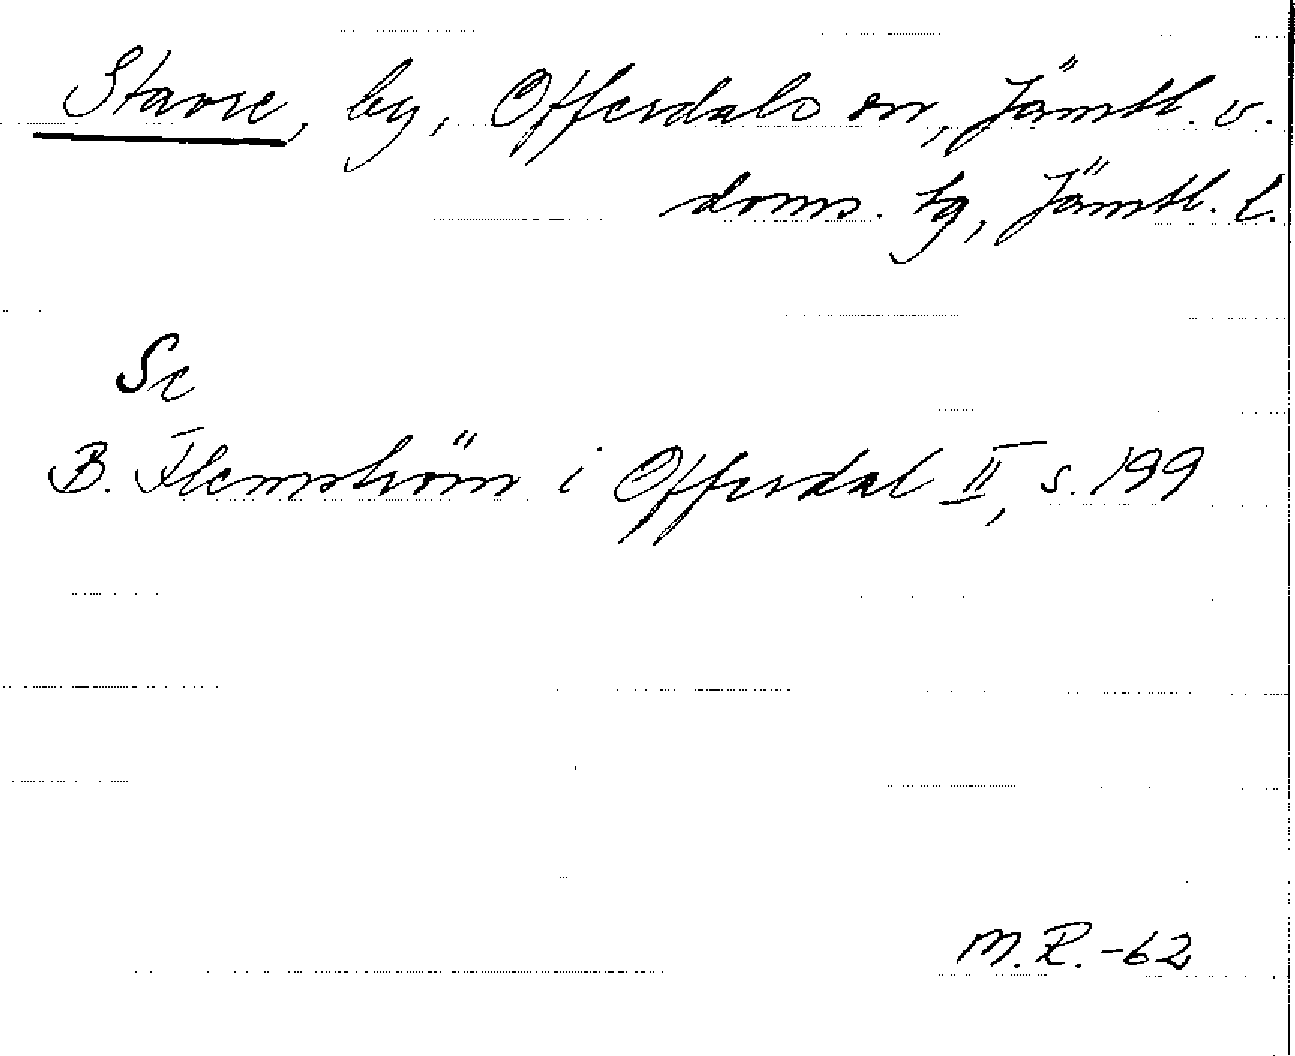 Stavre, by, Offerdals sn, Jämtl. v.
doms. tg, Jämtl. l.
Se
B. Flemström i Offerdal II, s. 199
M.R.-62